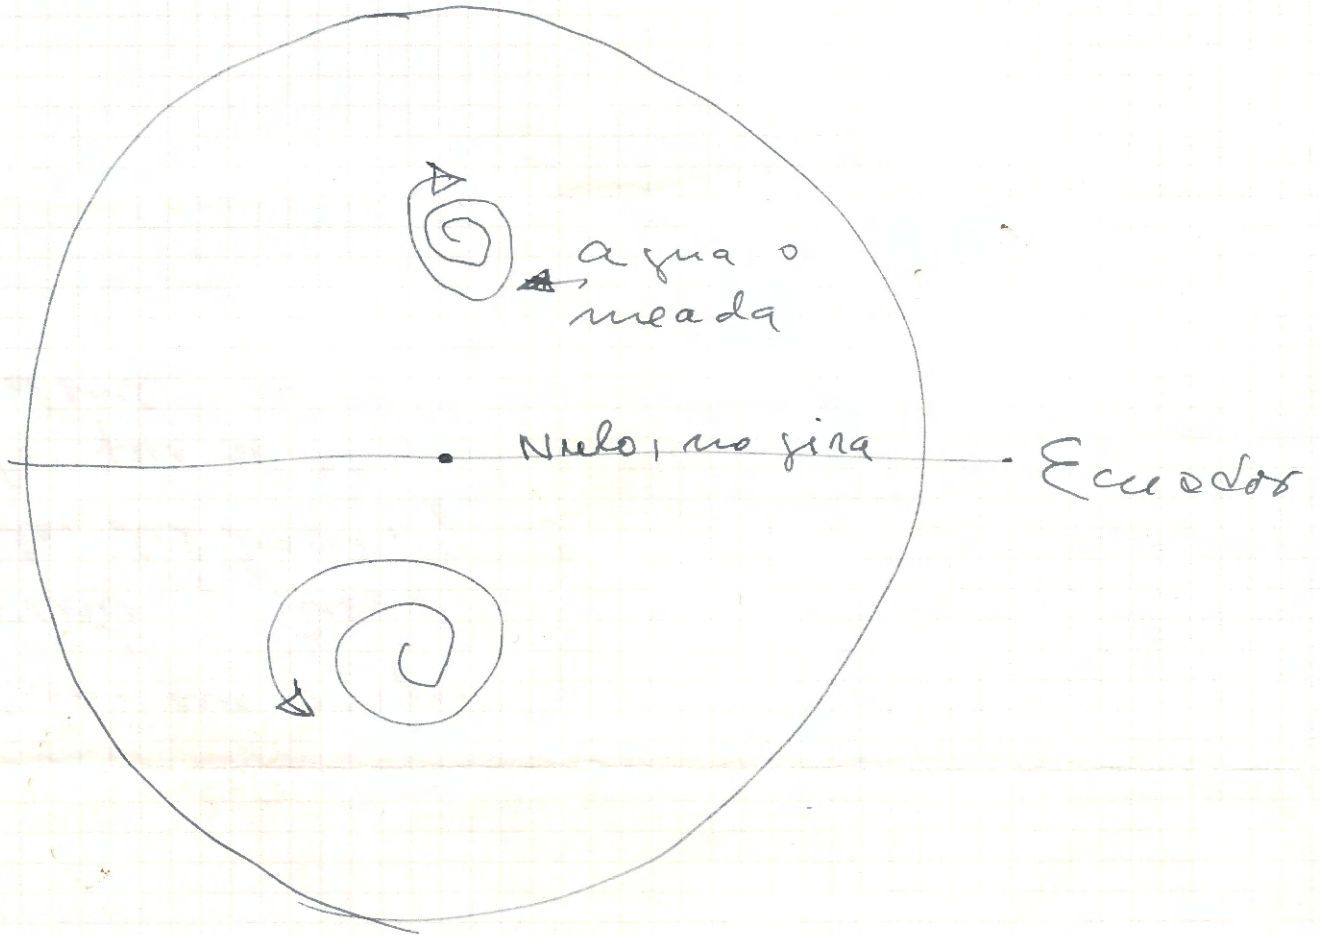 agua o
meada
Nulo, no gira
Ecuador